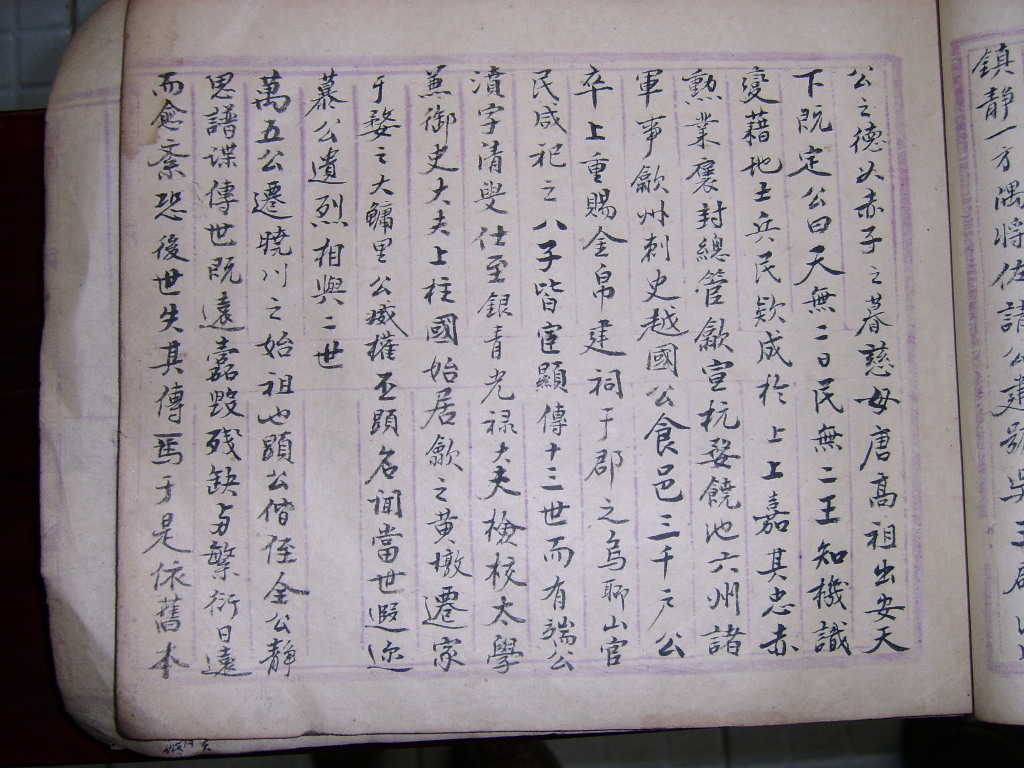 鎮静一方隅將佐請公建號吳王
公之德以赤子之暮慈母唐高祖出安天
下既定公曰天無二日民無二王知機識
變藉地土兵民欵成於上上嘉其忠赤
勲業褒封總管歙宣杭婺饒池六州諸
軍事歙州刺史越國公食邑三千户公
卒上重賜金帛建祠于郡之烏聊山官
民咸祀之八子皆宦顯傳十三世而有端公
濆字清叟仕至銀青光禄大夫檢校太學
兼御史大夫上柱國始居歙之黄墩遷家
于婺之大鳙里公臧權丕顕名闻當世遐迩
慕公遺烈相與二世
萬五公遷曉川之始祖也顕公偕侄全公静
思譜谍傳世既遠蠹毁殘缺与繁衍日遠
而愈紊恐後世失其傳焉于是依舊本